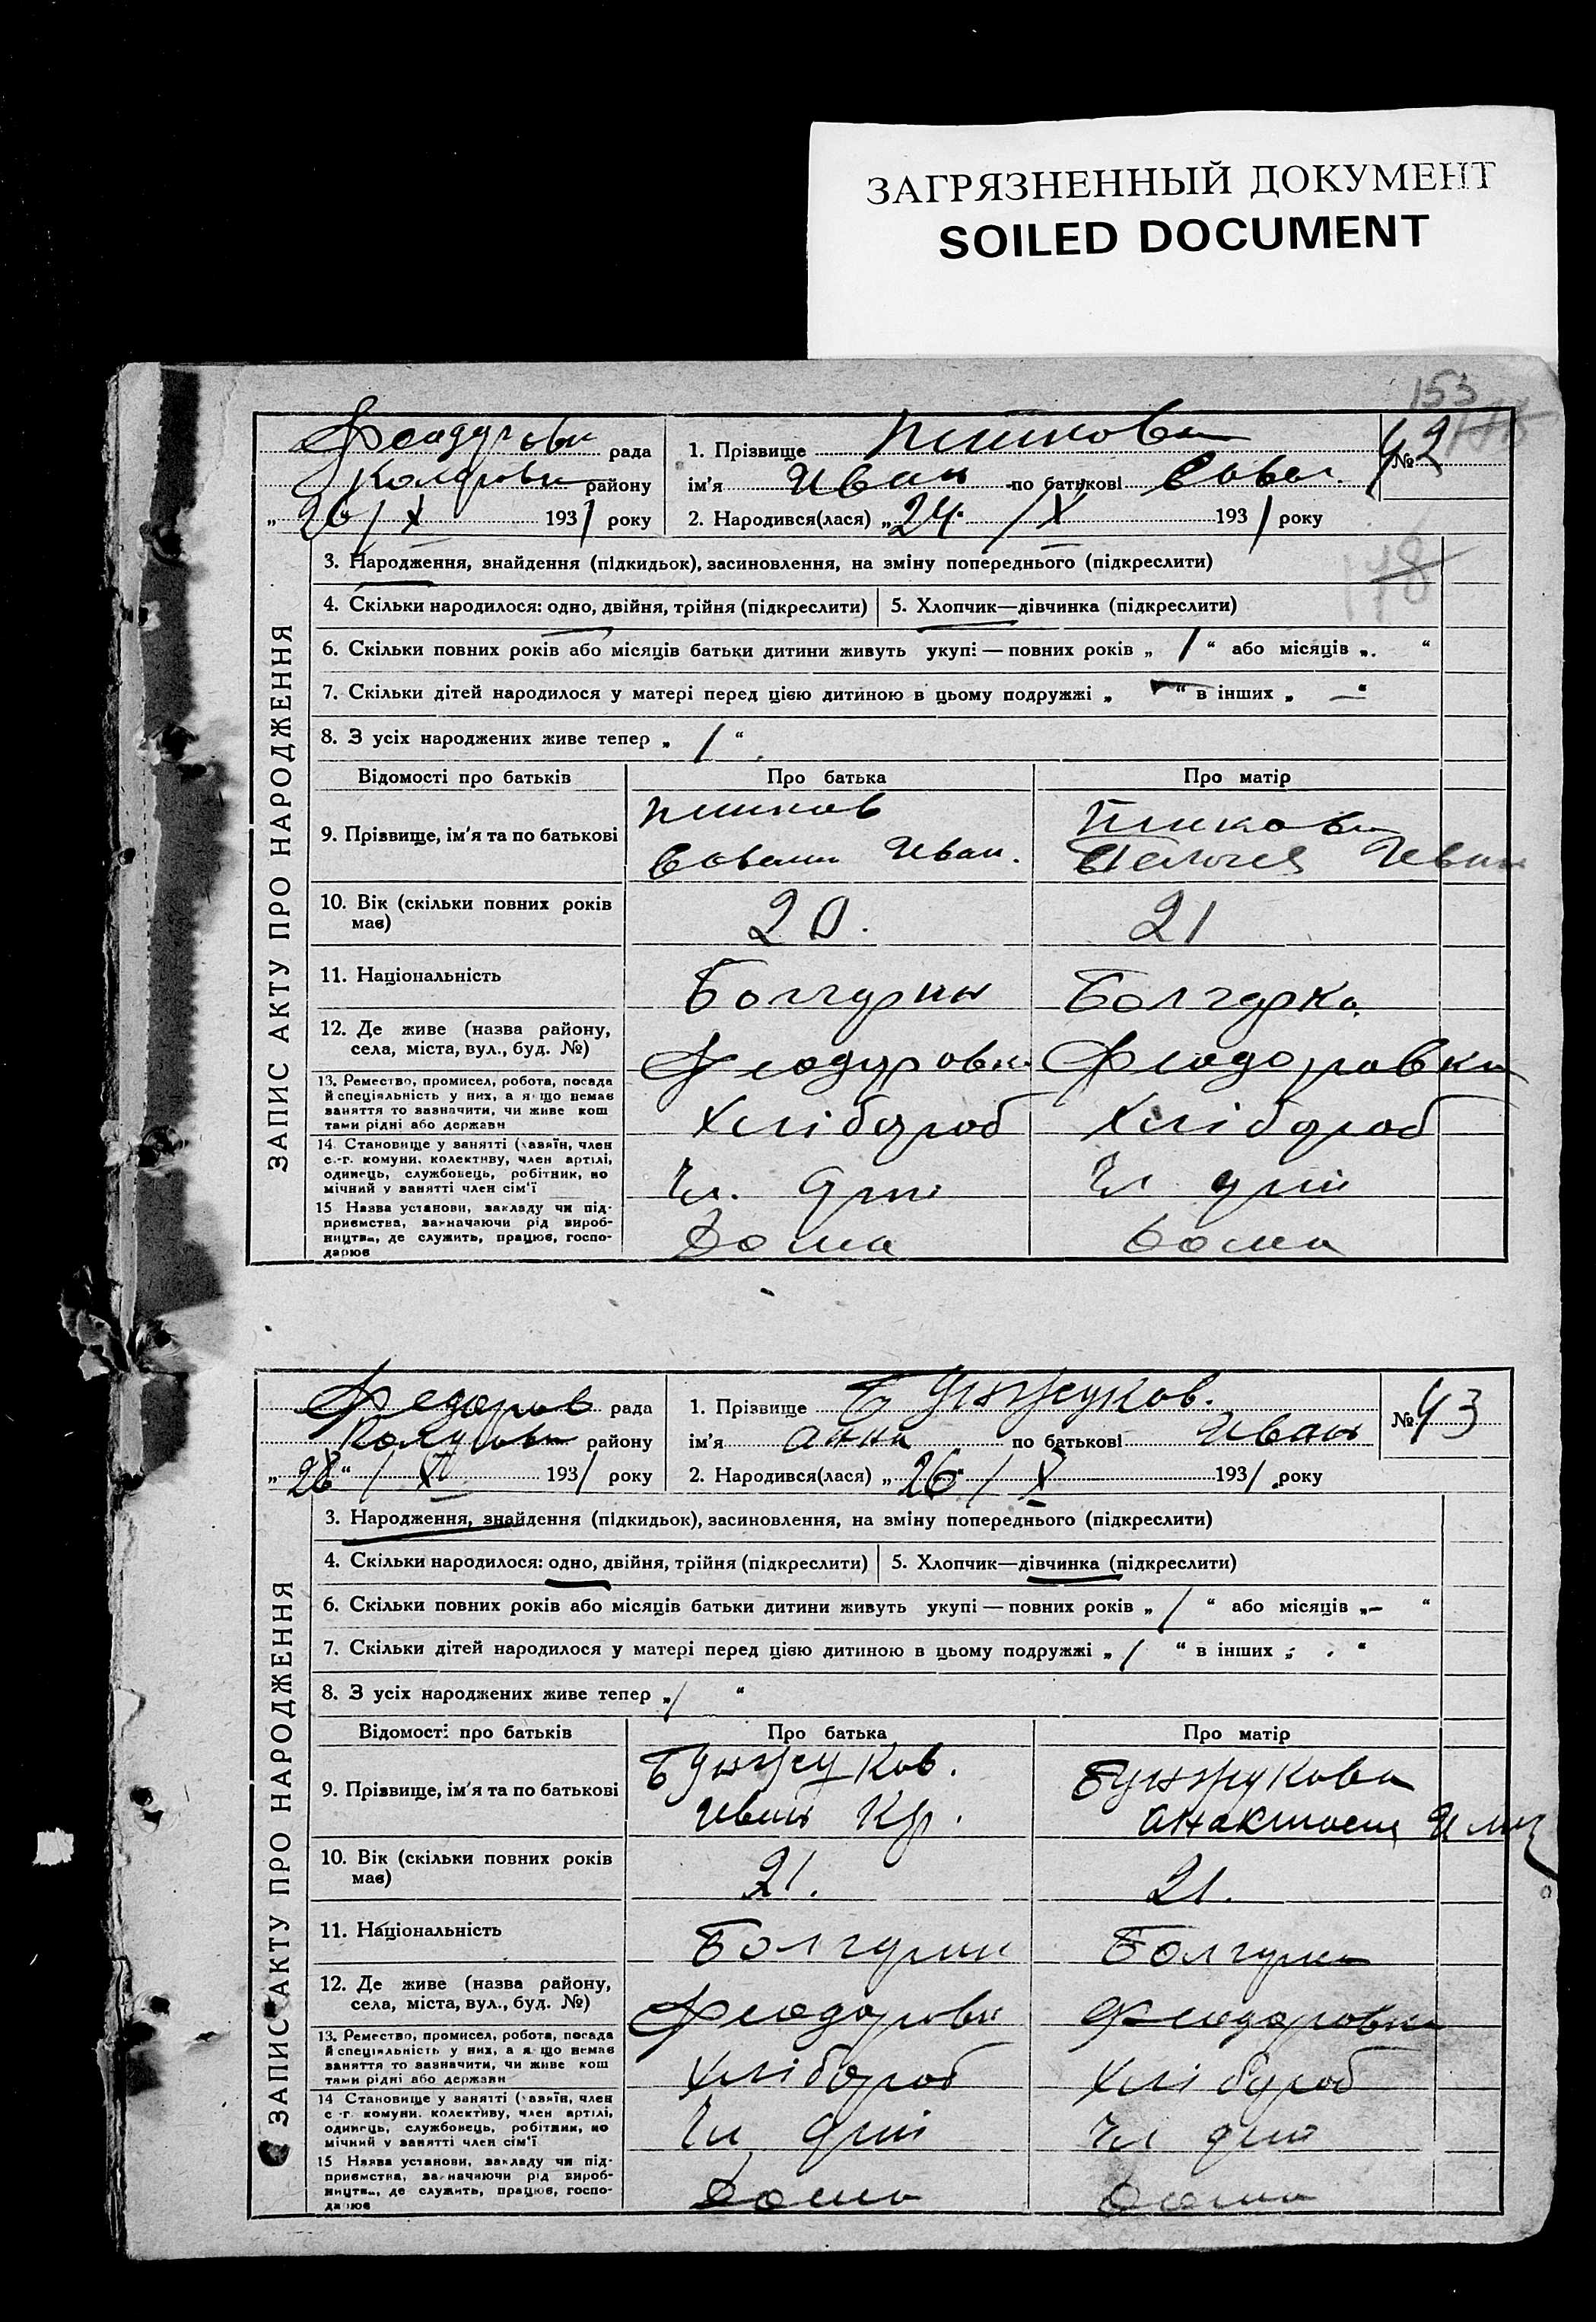 ЗАГРЯЗНЕННЫЙ ДОКУМЕНТ
SOILED DOCUMENT
153
ЗАПИС АКТУ ПРО НАРОДЖЕННЯ
рада
району
„26/X 1931 року
1. Прізвище
№ 42
ім'я Иван по батькові Савел.
2. Народився(лася) „24“ /X 1931 року
178
3. Народження, знайдення (підкидьок), засиновлення, на зміну попереднього (підкреслити)
4. Скільки народилося: одно, двійня, трійня (підкреслити)
5. Хлопчик—дівчинка (підкреслити)
6. Скільки повних років або місяців батьки дитини живуть укупі — повних років „ 1 “ або місяців „ “
7. Скільки дітей народилося у матері перед цією дитиною в цьому подружжі „ — “ в інших „ — “
8. З усіх народжених живе тепер „ 1 “
Відомості про батьків Про батька Про матір
9. Прізвище, ім'я та по батькові
Иван. Иван
10. Вік (скільки повних років має) 20. 21
11. Національність Болгарин Болгарка
12. Де живе (назва району, села, міста, вул., буд. №) Феодоровка Феодоровка
13. Ремество, промисел, робота, посада й спеціяльність у них, а якщо немає заняття то зазначити, чи живе коштами рідні або держави Хлібороб Хлібороб
14. Становище у занятті (хазяїн, член с.-г. комуни, колективу, член артілі, одинець, службовець, робітник, помічний у занятті член сім'ї Чл. арті Чл арті
15 Назва установи, закладу чи підприємства, зазначаючи рід виробництва, де служить, працює, господарює Дома Дома
ЗАПИС АКТУ ПРО НАРОДЖЕННЯ
Федоров рада
району
„28“ / X 1931 року
1. Прізвище Бунжуков.
№ 43
ім'я Анна по батькові Иван
2. Народився(лася) „26“ / X 1931 року
3. Народження, знайдення (підкидьок), засиновлення, на зміну попереднього (підкреслити)
4. Скільки народилося: одно, двійня, трійня (підкреслити)
5. Хлопчик—дівчинка (підкреслити)
6. Скільки повних років або місяців батьки дитини живуть укупі — повних років „ 1 “ або місяців „ — “
7. Скільки дітей народилося у матері перед цією дитиною в цьому подружжі „ 1 “ в інших „ “
8. З усіх народжених живе тепер „ 1 “
Відомості про батьків Про батька Про матір
9. Прізвище, ім'я та по батькові Бунжуков. Бунжукова
Иван Кр.
10. Вік (скільки повних років має) 21. 21.
11. Національність Болгарин Болгарка
12. Де живе (назва району, села, міста, вул., буд. №) Феодоровка Феодоровка
13. Ремество, промисел, робота, посада й спеціяльність у них, а якщо немає заняття то зазначити, чи живе коштами рідні або держави Хлібороб Хлібороб
14 Становище у занятті (хазяїн, член с.-г. комуни, колективу, член артілі, одинець, службовець, робітник, помічний у занятті член сім'ї Чл арті Чл арті
15 Назва установи, закладу чи підприємства, зазначаючи рід виробництва, де служить, працює, господарює Дома Дома